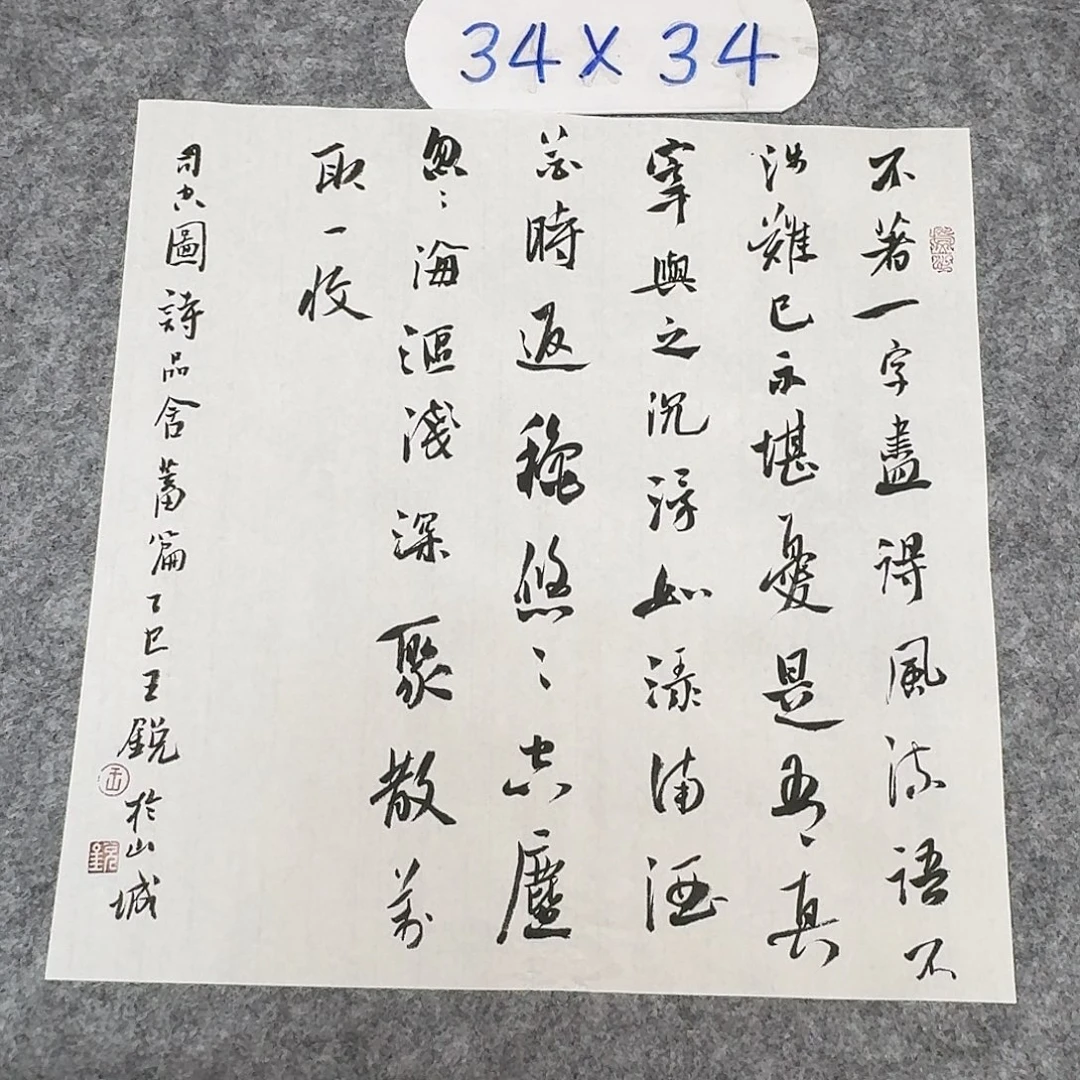 34×34
不著一字盡得風流語不
涉難已不堪憂是真
宰與之沉浮如渌滿酒
花時返穐悠〻空塵
忽〻海漚淺深聚散萬
取一收
司空圖詩品含蓄篇乙巳王銳於山城